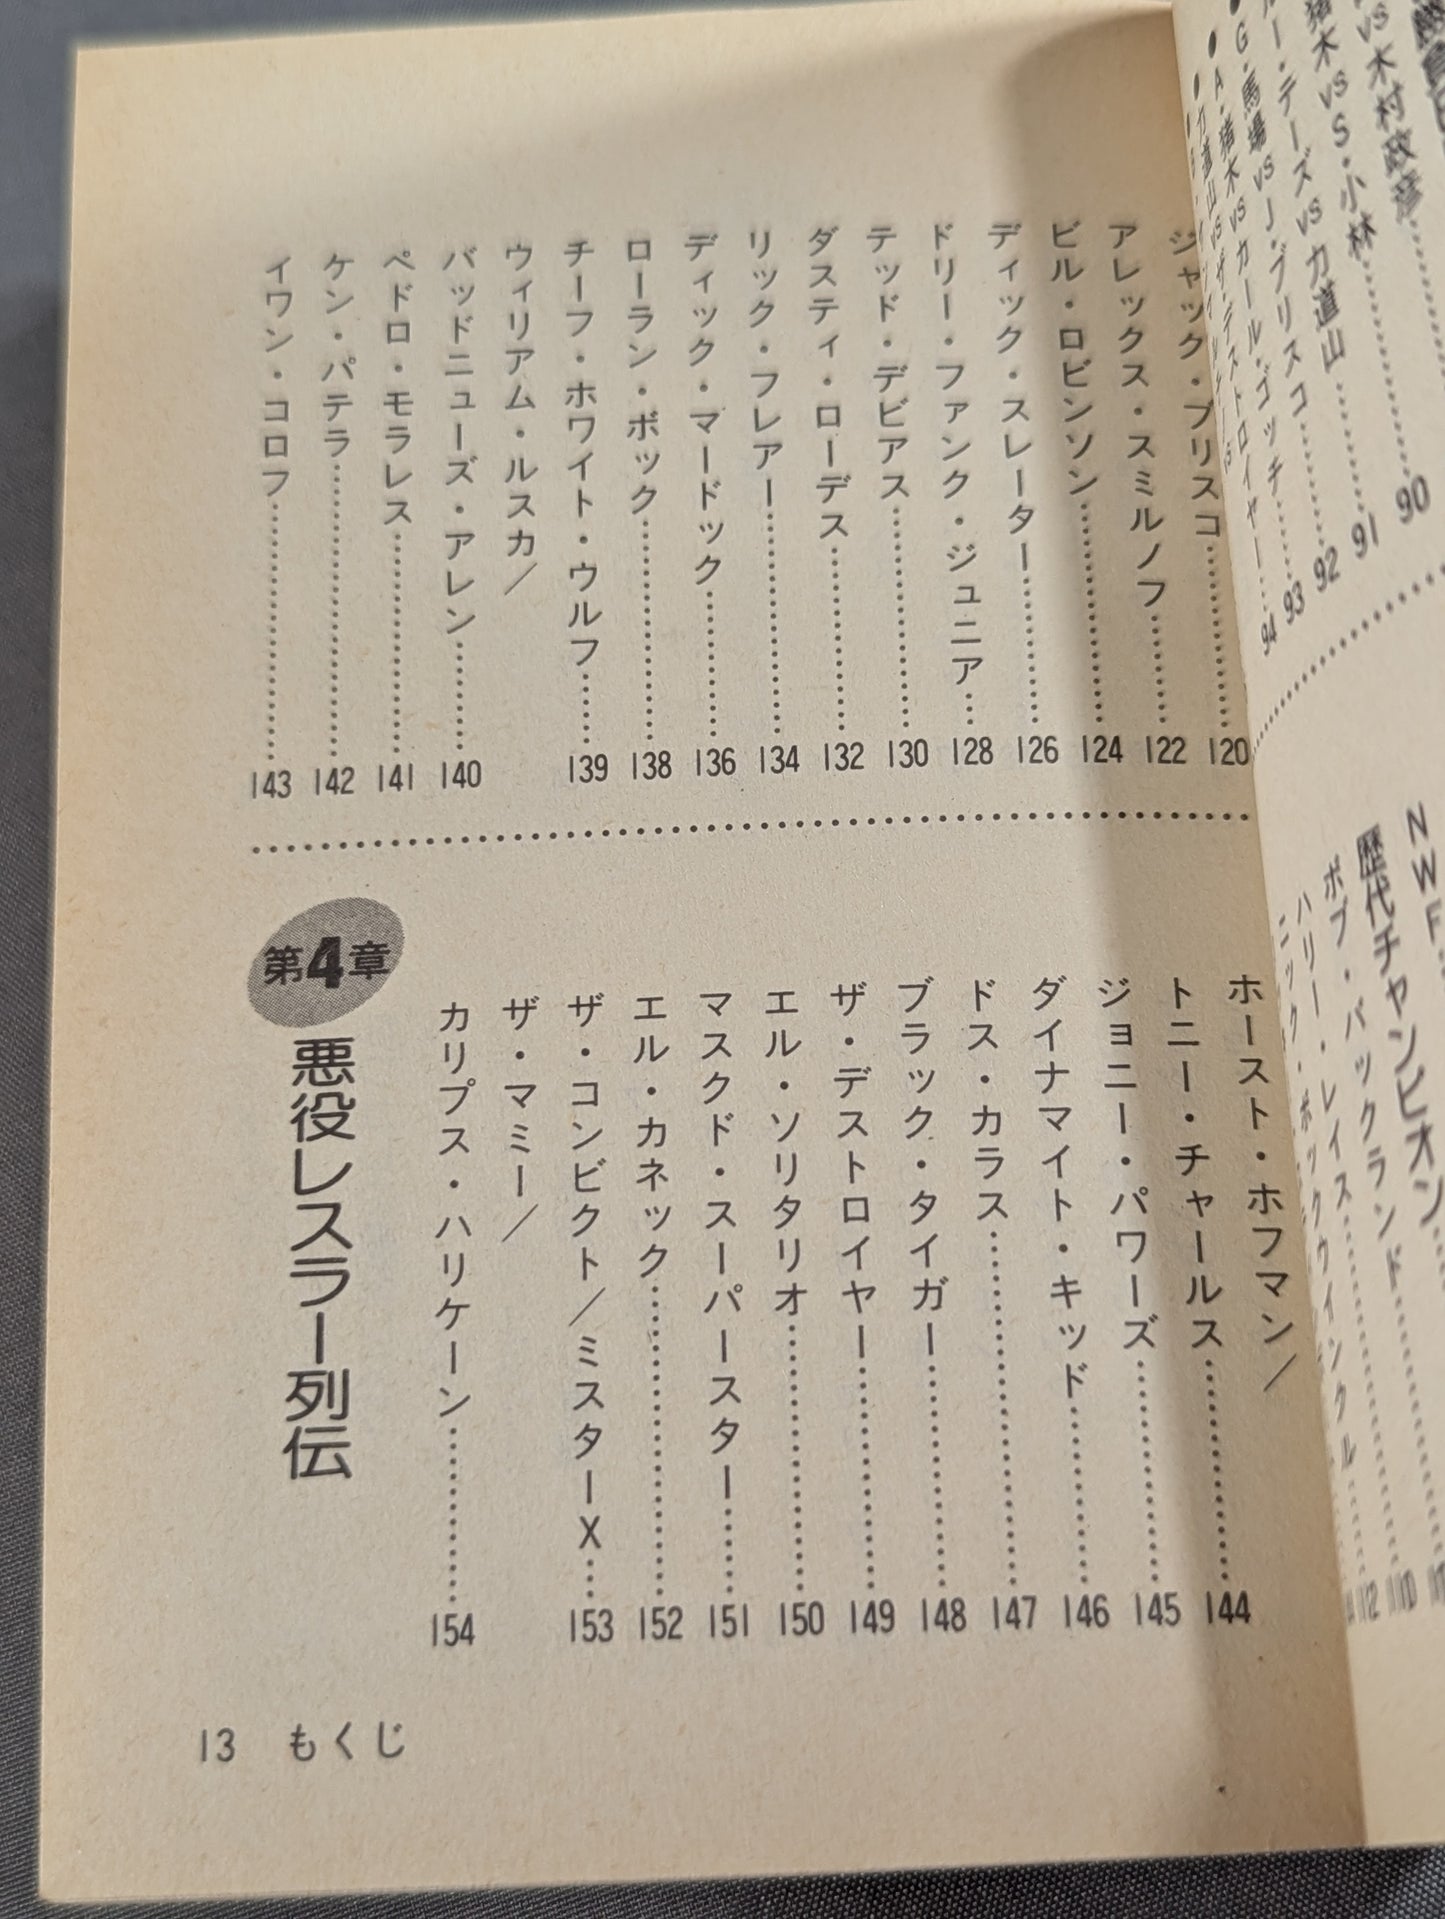 A・猪木vsカール・ゴッチ……93
ジャック・ブリスコ……120
アレックス・スミルノフ……122
ビル・ロビンソン……124
ディック・スレーター……126
ドリー・ファンク・ジュニア……128
テッド・デビアス……130
ダスティ・ローデス……132
リック・フレアー……134
ディック・マードック……136
ローラン・ボック……138
チーフ・ホワイト・ウルフ……139
ウィリアム・ルスカ／
バッドニューズ・アレン……140
ペドロ・モラレス……141
ケン・パテラ……142
イワン・コロフ……143
歴代チャンピオン
ボブ・バックランド……110
ハリー・レイス……112
ホースト・ホフマン／
トニー・チャールス……144
ジョニー・パワーズ……145
ダイナマイト・キッド……146
ドス・カラス……147
ブラック・タイガー……148
ザ・デストロイヤー……149
エル・ソリタリオ……150
マスクド・スーパースター……151
エル・カネック……152
ザ・コンビクト／ミスターX……153
ザ・マミー／
カリプス・ハリケーン……154
第4章 悪役レスラー列伝
13 もくじ